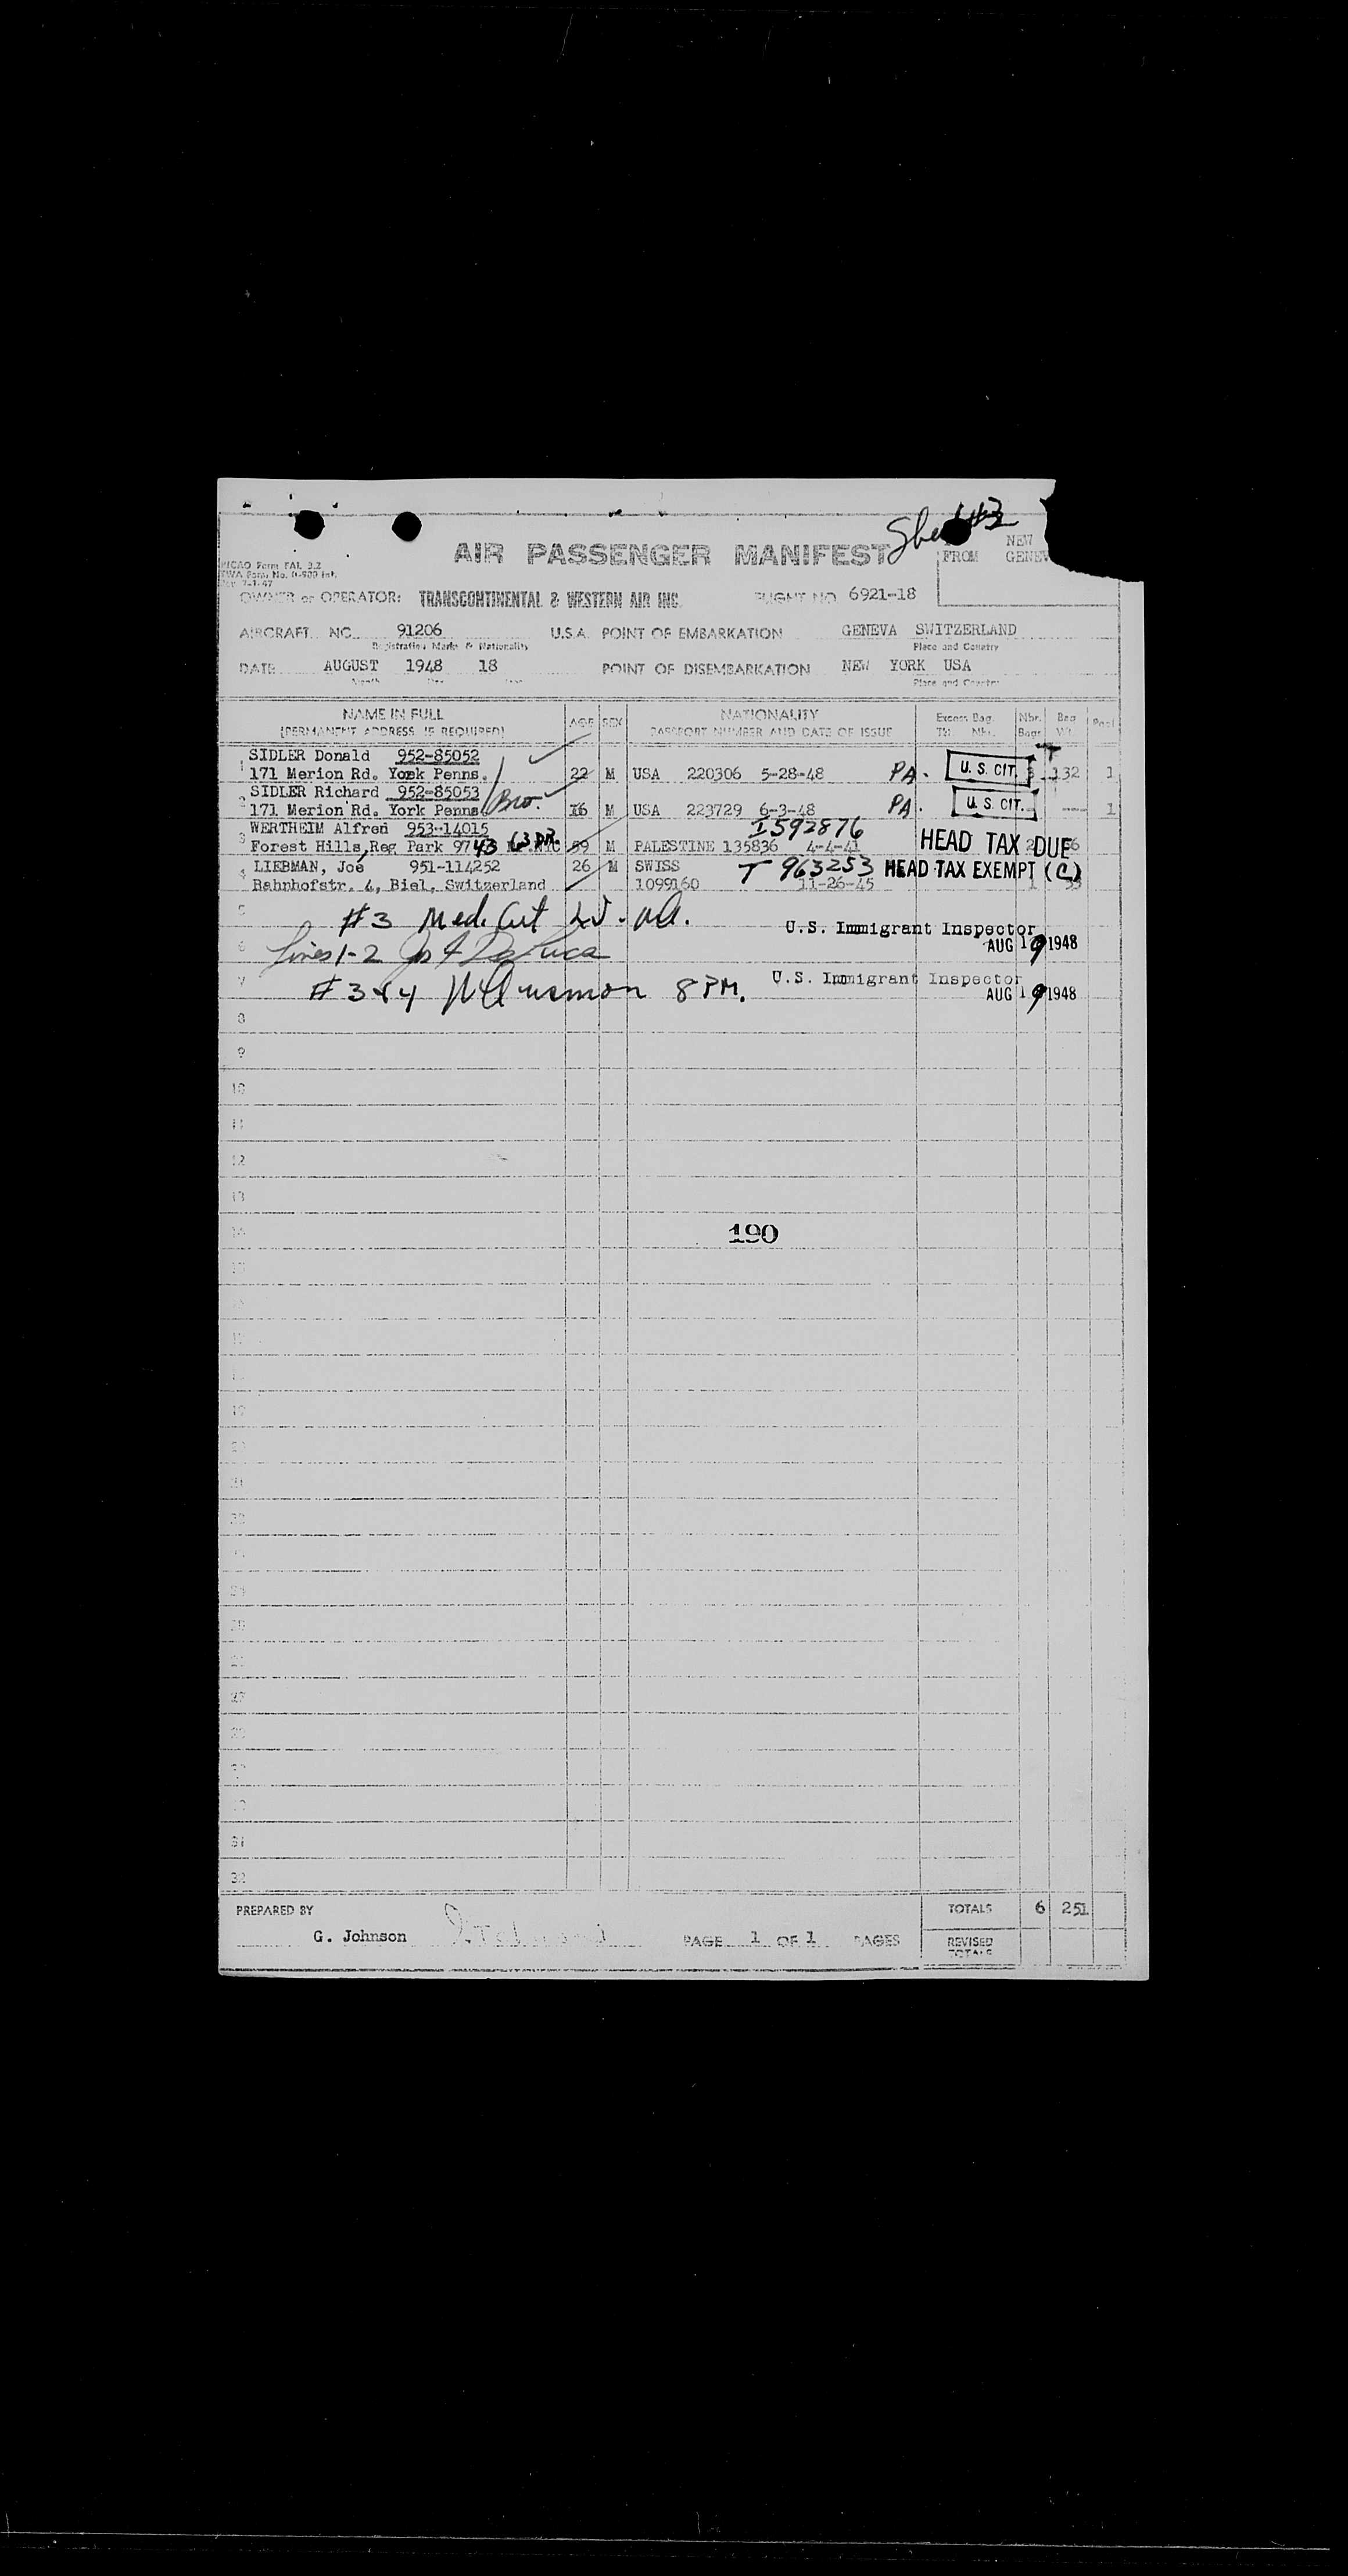 AIR PASSENGER MANIFEST
NEW
FROM GENEV
ICAO Form FAL 3.2
TWA Form No. 0-900 Int.
Rev 7-1-47
OWNER or OPERATOR: TRANSCONTINENTAL & WESTERN AIR INC. FLIGHT NO 6921-18
AIRCRAFT NC 91206 U.S.A. POINT OF EMBARKATION GENEVA SWITZERLAND
Registration Marks & Nationality Place and Country
DATE AUGUST 1948 18 POINT OF DISEMBARKATION NEW YORK USA
Month Place and Country
NAME IN FULL AGE SEX NATIONALITY Excess Bag. Nbr. Bag
(PERMANENT ADDRESS IF REQUIRED) PASSPORT NUMBER AND DATE OF ISSUE Tkt Nbr. Bags Wt. Pool
SIDLER Donald 952-85052
1 171 Merion Rd. York Penns. 22 M USA 220306 5-28-48 PA. U. S. CIT. 3 132 1
SIDLER Richard 952-85053
2 171 Merion Rd. York Penns. Bro. 16 M USA 223729 6-3-48 PA. U. S. CIT. --- 1
WERTHEIM Alfred 953-14015 I592876
3 Forest Hills, Reg Park 9743 63 DR. 59 M PALESTINE 135836 4-4-41 HEAD TAX DUE 2
4 LIEBMAN, Joé 951-114252 26 M SWISS T 963253 HEAD TAX EXEMPT (C)
Bahnhofstr. 4, Biel, Switzerland 1099160 11-26-45 1
5 #3 Med. Cert
U.S. Immigrant Inspector
6 Lines 1-2 AUG 19 1948
7 #3 & 4 8 PM. U.S. Immigrant Inspector
AUG 19 1948
8
9
10
11
12
13
190
31
32
PREPARED BY TOTALS 6 251
G. Johnson PAGE 1 OF 1 PAGES REVISED
TOTALS